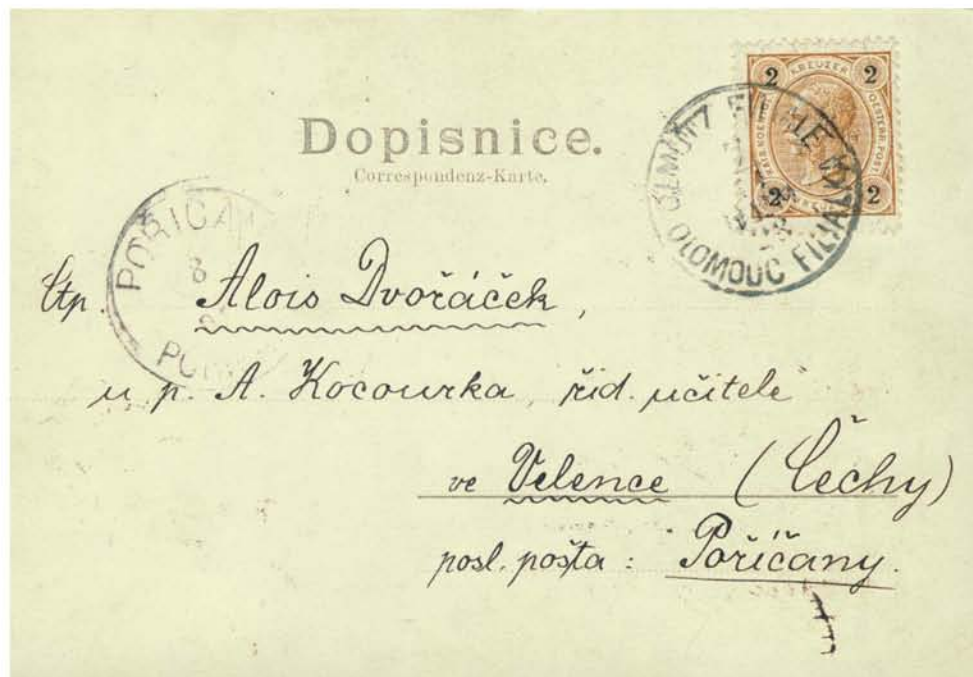 Dopisnice.
Correspondenz-Karte.
2 KREUZER 2
OESTERR. POST
2 2
OLMÜTZ FILIALE
OLOMOUC FILIÁLKA
POŘÍČAN
8
Ctp. Alois Dvořáček,
u p. A. Kocourka, říd. učitele
ve Velence (Čechy)
posl. pošta: Poříčany.